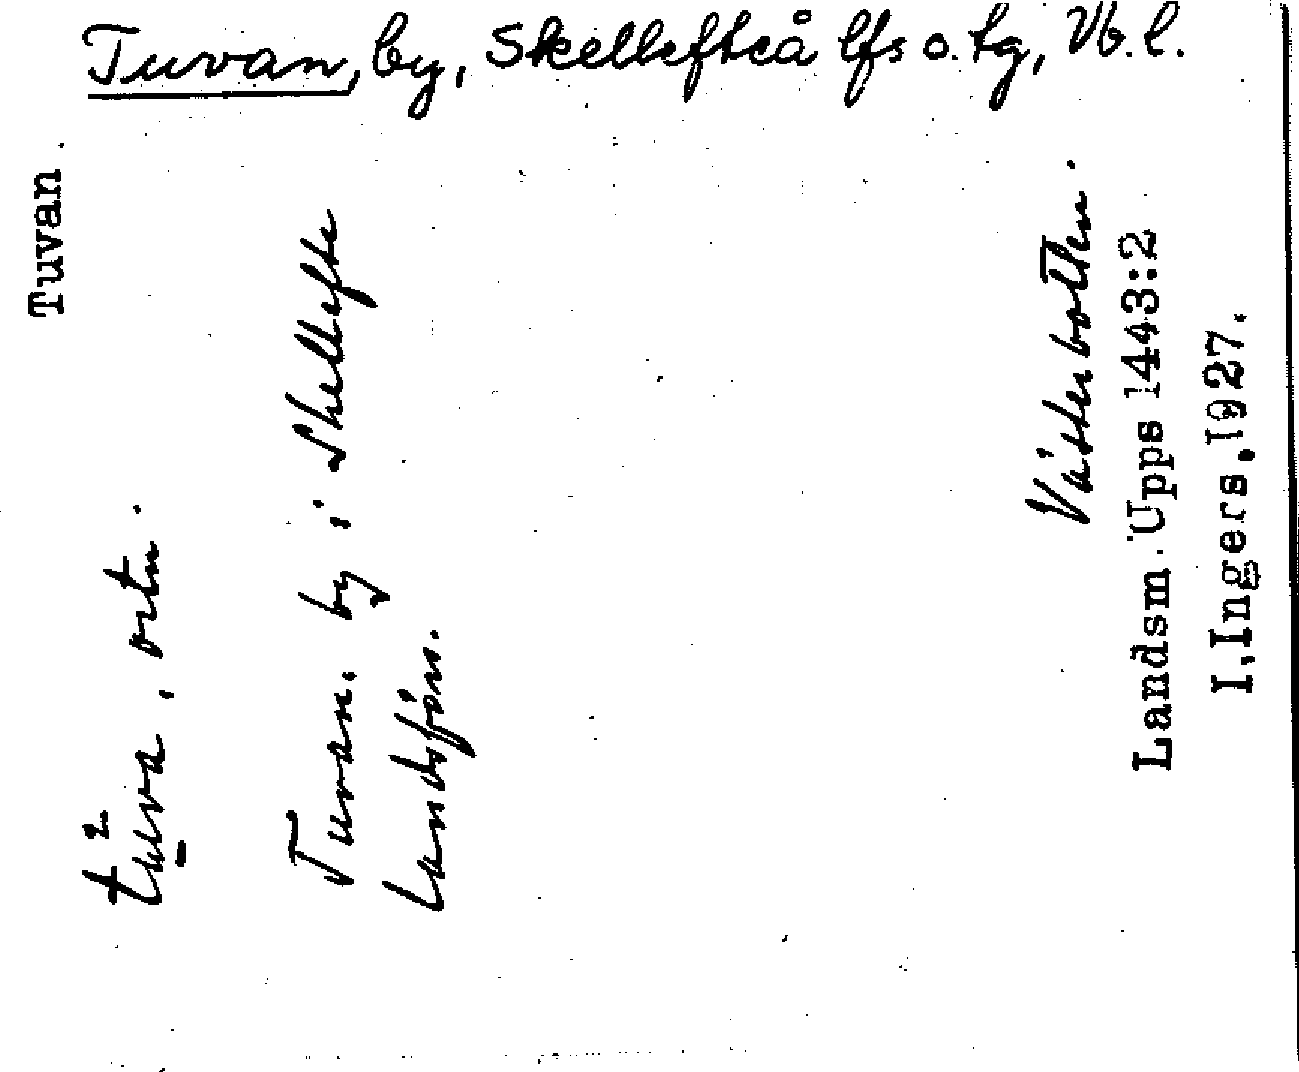 Tuvan, by, Skellefteå lfs o. tg, Vb. l.
Tuvan.
tu̱²va, ortn.
Tuvan, by i Skellefte
landsförs.
Västerbotten.
Landsm. Upps 1443:2
I. Ingers, 1927.